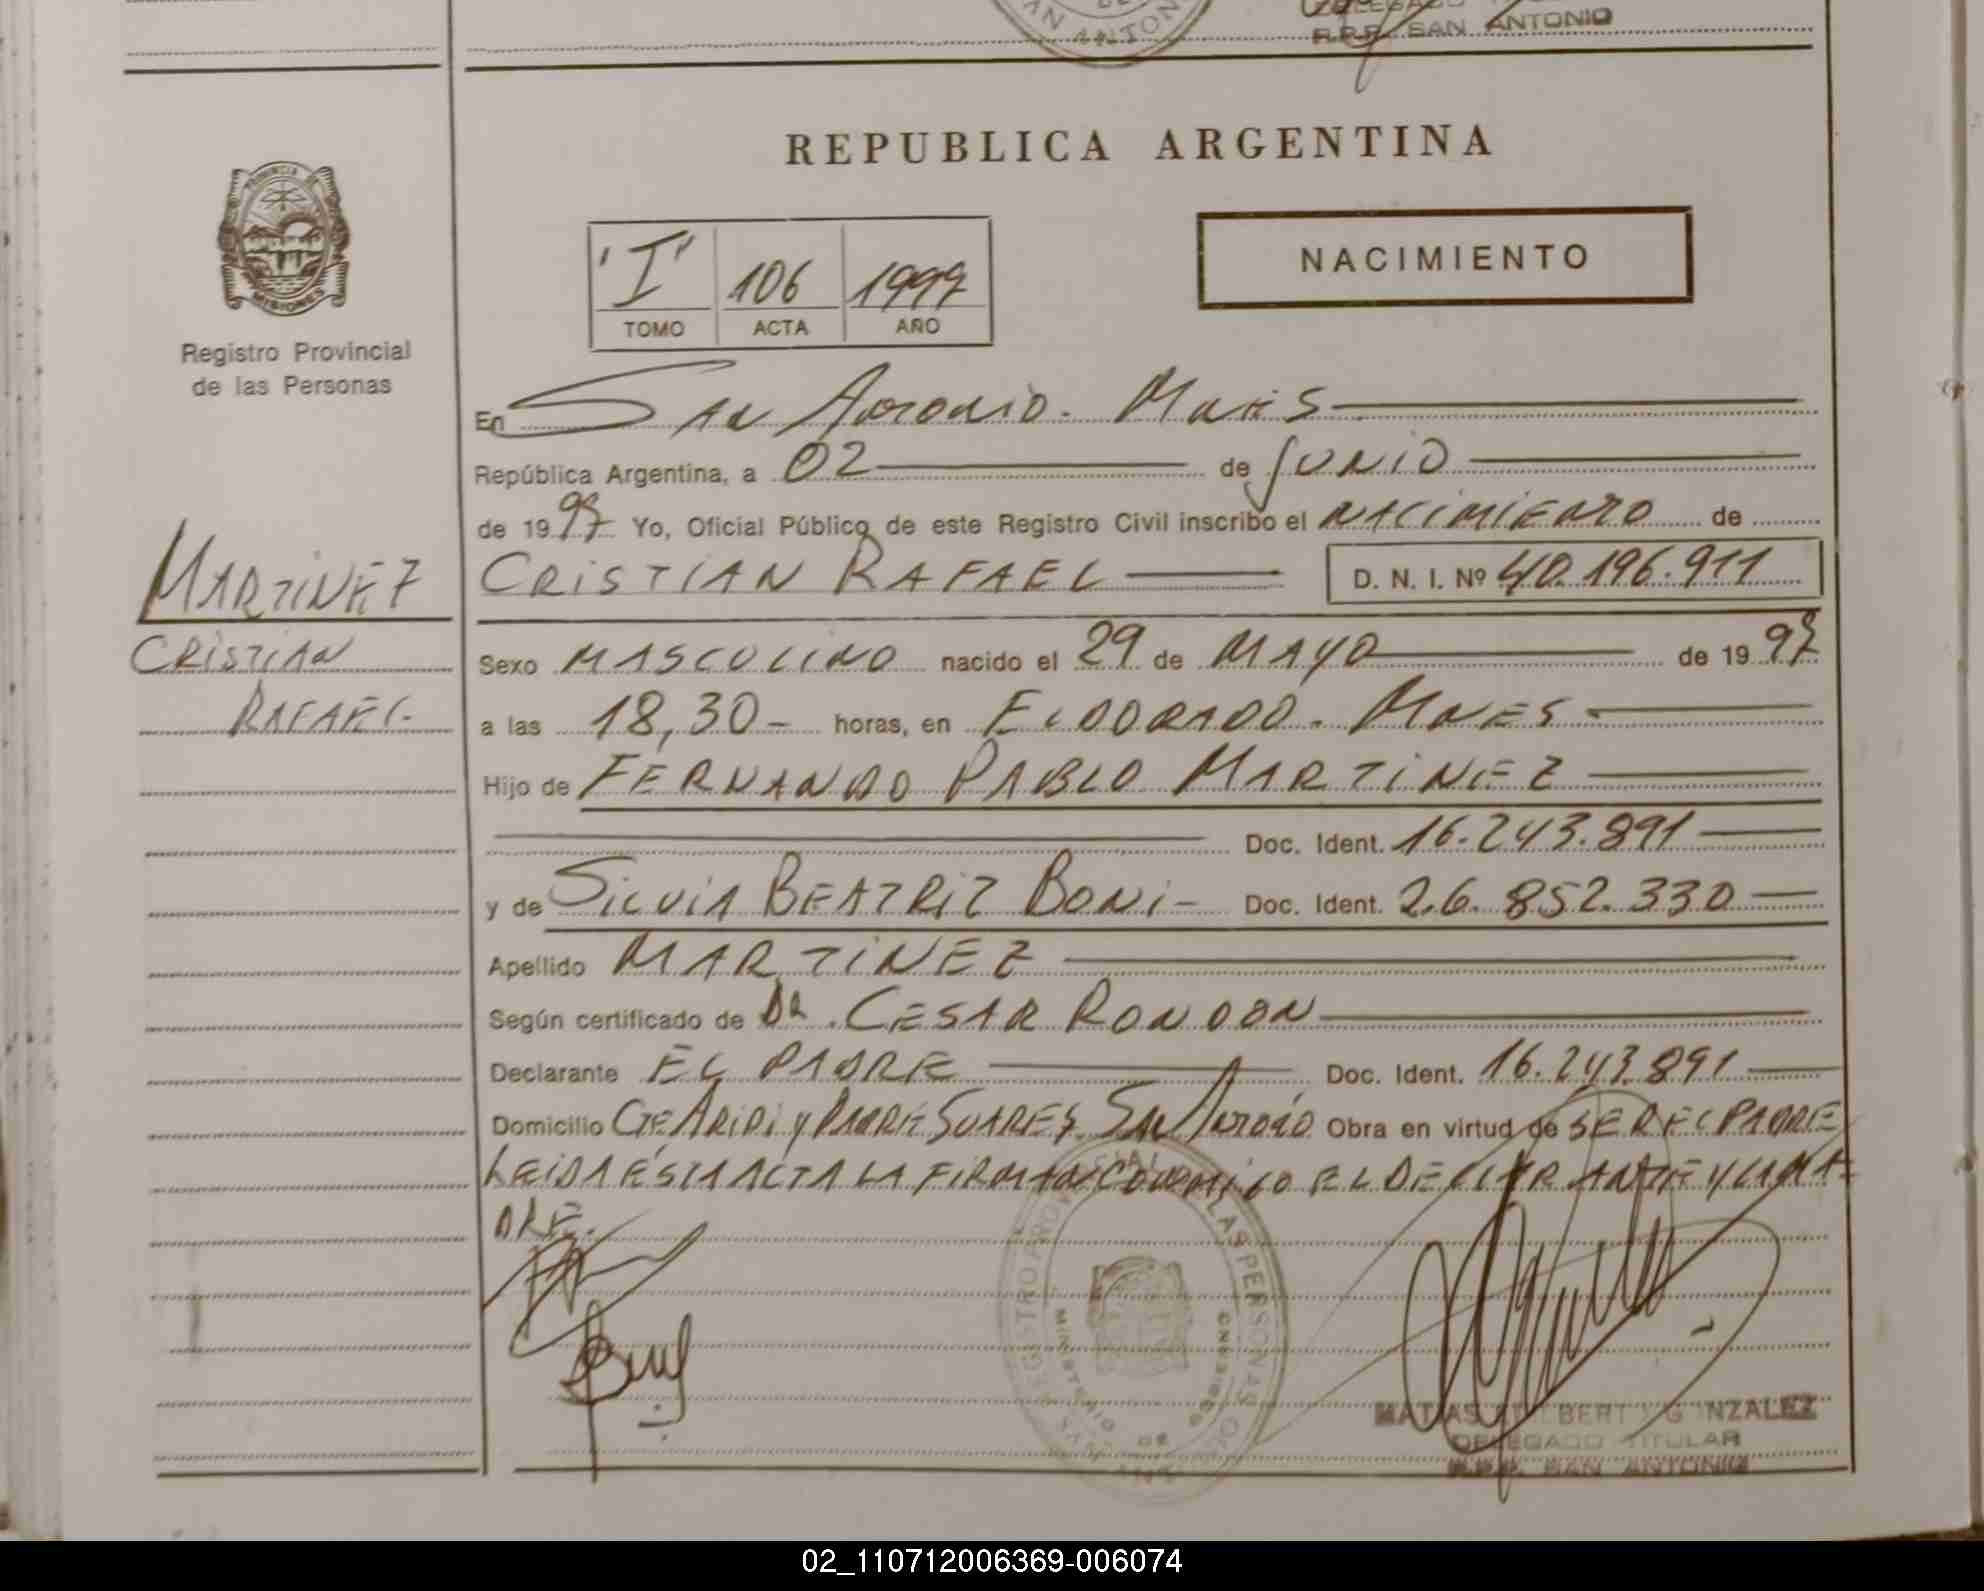 SAN ANTONIO
R.P.P. SAN ANTONIO
REPUBLICA ARGENTINA
PROVINCIA DE
MISIONES
Registro Provincial
de las Personas
"I" 106 1997
TOMO ACTA AÑO
NACIMIENTO
En San Antonio. Mnes
República Argentina, a 02 de Junio
de 1997 Yo, Oficial Público de este Registro Civil inscribo el NACIMIENTO de
MARTINEZ
CRISTIAN
RAFAEL
CRISTIAN RAFAEL D. N. I. Nº 40.196.911
Sexo MASCULINO nacido el 29 de MAYO de 1997
a las 18,30- horas, en ELDORADO. MNES
Hijo de FERNANDO PABLO MARTINEZ
Doc. Ident. 16.243.891
y de SILVIA BEATRIZ BONI- Doc. Ident. 26.852.330
Apellido MARTINEZ
Según certificado de DR. CESAR RONDON
Declarante EL PADRE Doc. Ident. 16.243.891
Domicilio Y PADRE SUARES. SAN ANTONIO Obra en virtud de SER EL PADRE
LEIDA ESTA ACTA LA FIRMAN CONMIGO EL DECLARANTE Y LA MA-
DRE.
REGISTRO PROVINCIAL DE LAS PERSONAS
MINISTERIO DE GOBIERNO
MATIAS GONZALEZ
DELEGADO TITULAR
R.P.P. SAN ANTONIO
02_110712006369-006074